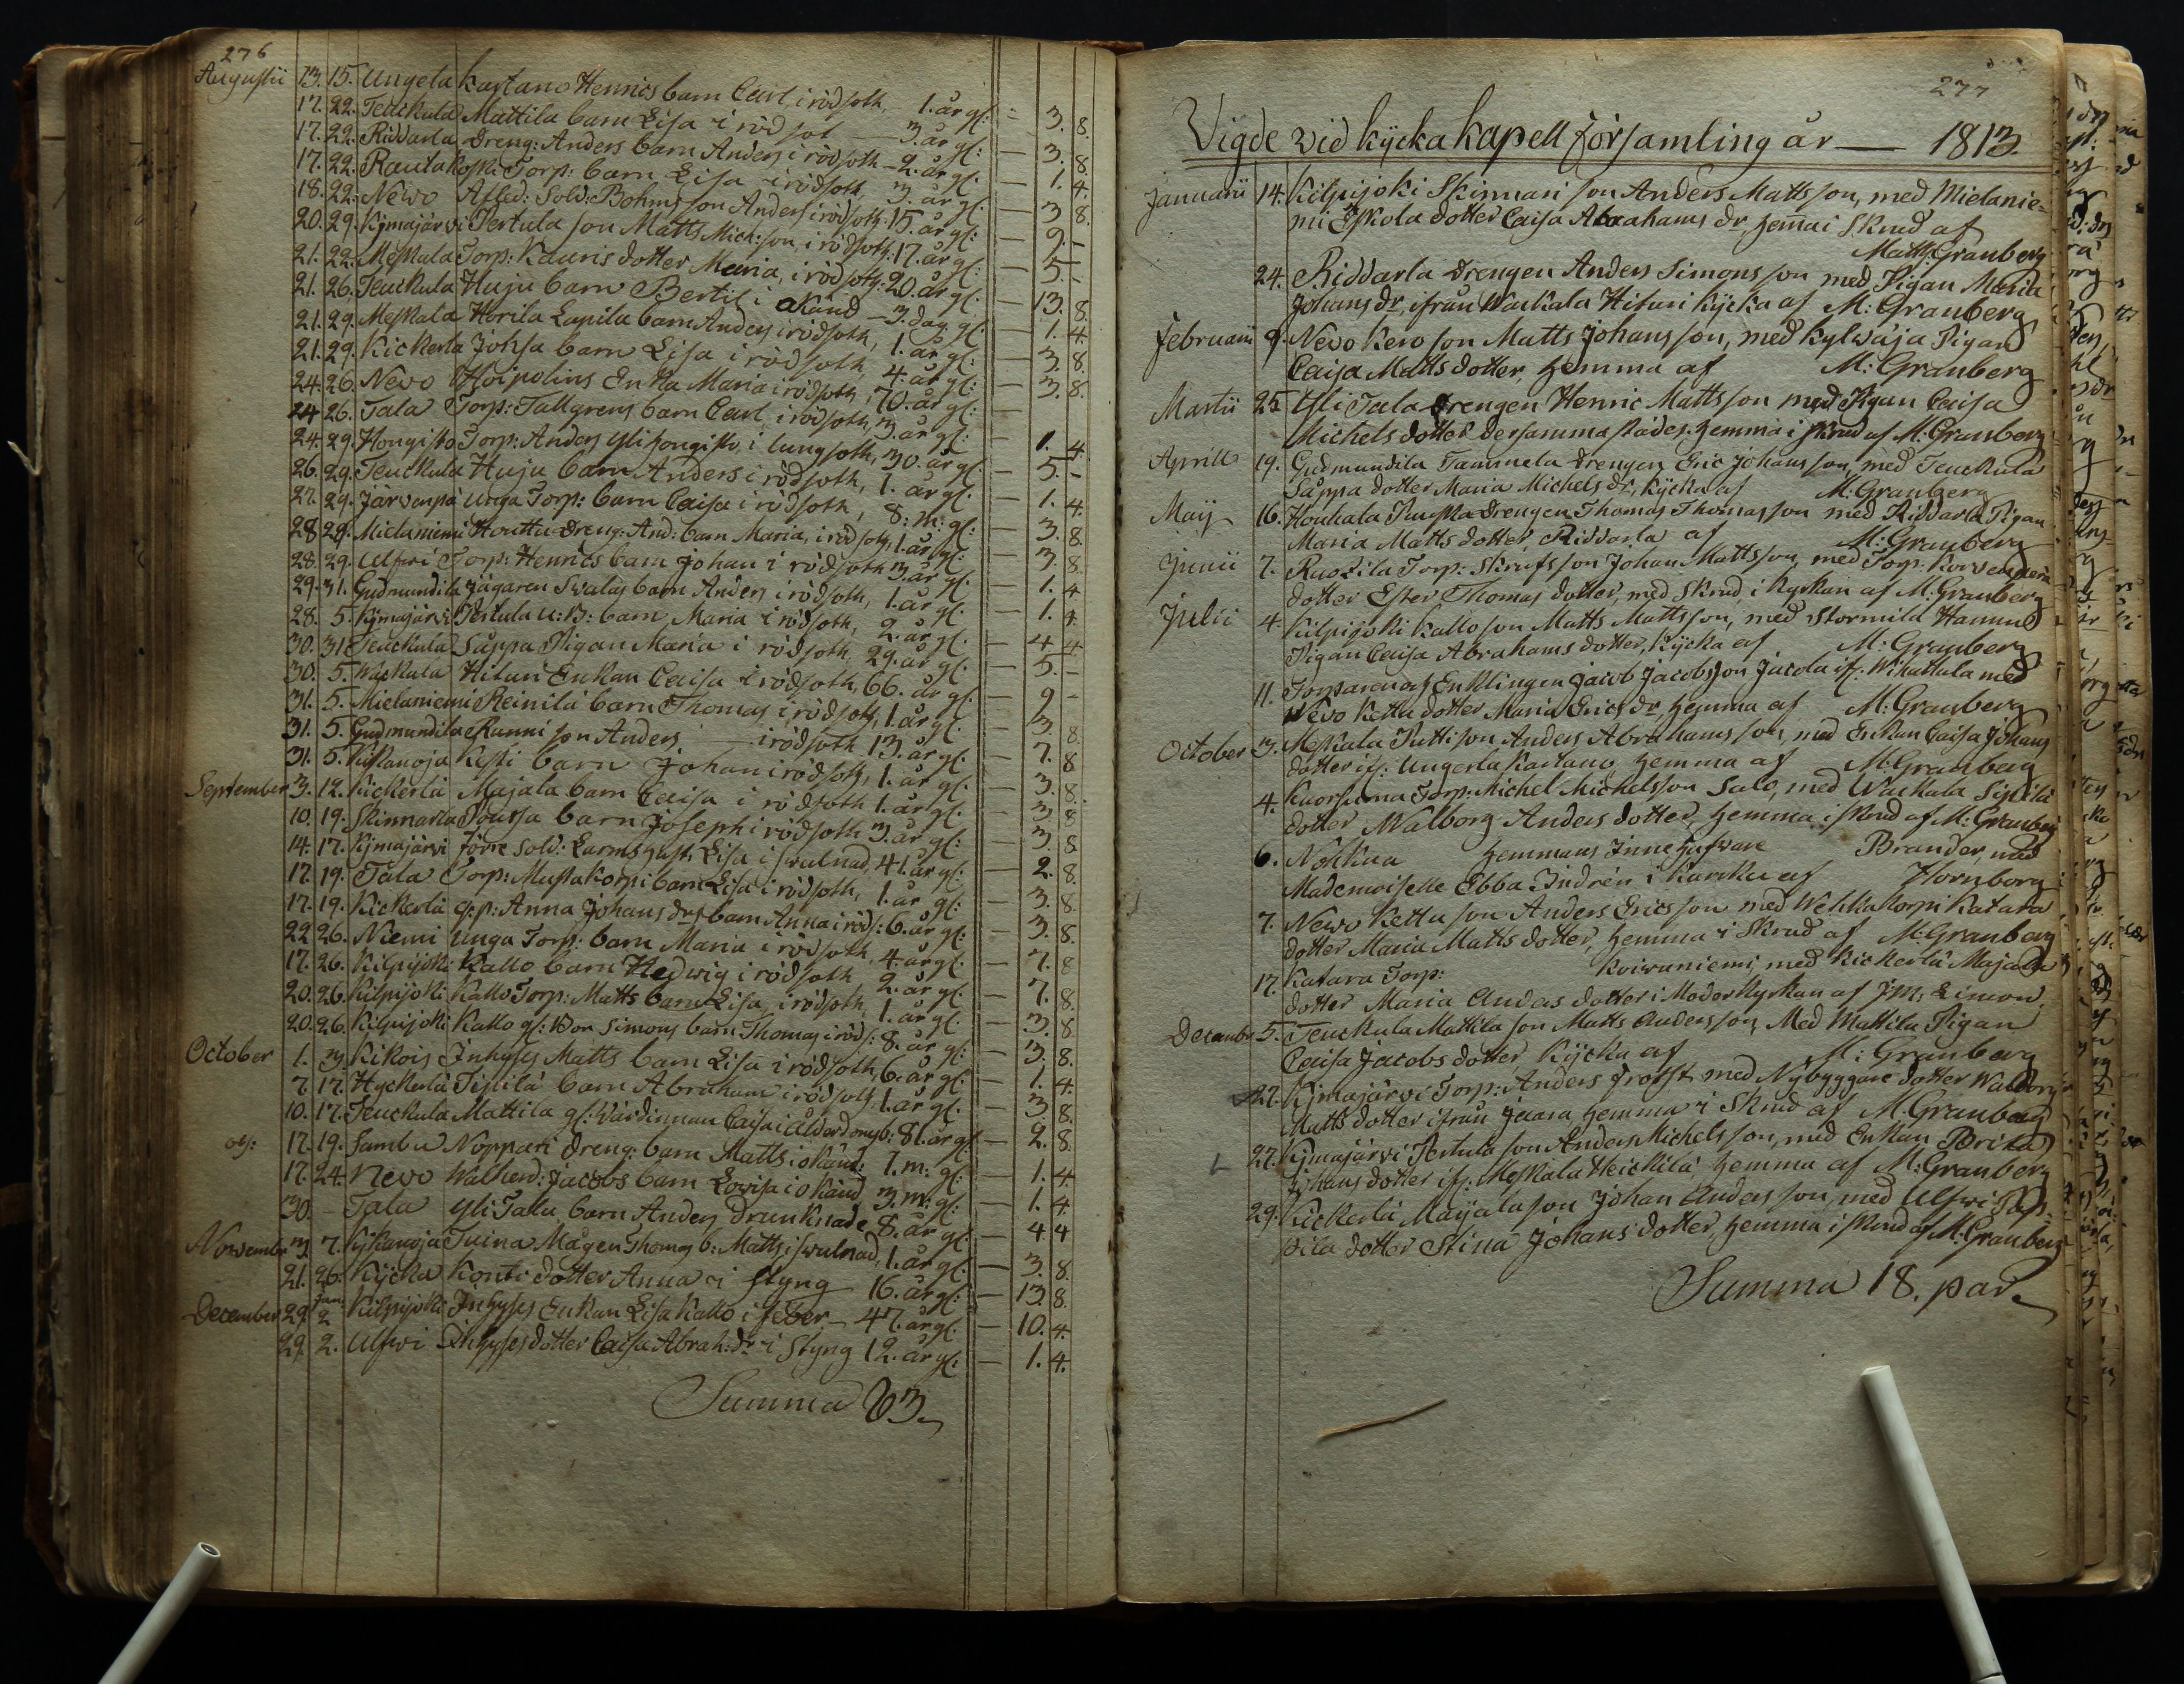 276
Augustii 13. 15. Ungela Kartano Henrics barn Carl, i rödsoth, 1. år gl: — 3. 8.
17. 22. Teuckula Mattila barn Lisa i rödsot — 3. år gl: — 3. 8.
17. 22. Riddarla Dreng: Anders barn Anders i rödsoth — 2. år gl. — 1. 4.
17. 22. Rautakoski Torp: barn Lisa i rödsoth 3. år gl. — 3. 8.
18. 22. Nevo Afsked: Sold: Bohms son Anders i rödsoth: 15. år gl: — 9. -
20. 29. Kijmajärvi Pertula son Matts Mich:son, i rödsoth: 17. år gl: — 5. -
21. 22. Meskala Torp: Kauris dotter Maria, i rödsoth: 20. år gl: — 13. 8.
21. 26. Teuckula Huju barn Bertil i okänd — 3. dag. gl: — 1. 4.
21. 29. Meskala Horila Lapila barn Anders i rödsoth, 1. år gl: — 3. 8.
21. 29. Kickerla Johsa barn Lisa i rödsoth, 4. år gl: — 3. 8.
24. 26. Nevo Hoipolins Enka Maria i rödsoth, 70. år gl:
24 26. Tala Torp: Tallgrens barn Carl i rödsoth, 3. år gl: — 1. 4.
24. 29. Hongisto Torp: Anders Ylihongisto, i lungsoth, 30. år gl: — 5. -
26. 29. Teuckula Huju barn Anders i rödsoth, 1. år gl. — 1. 4.
27. 29. Järvenpä Unga Torp: barn Caisa i rödsoth, 8: m: gl: — 3. 8.
28 29. Mielaniemi Houttu Dreng: And: barn Maria, i rödsoth, 1. år gl: — 3. 8.
28. 29. Ulfvi Torp: Henrics barn Johan i rödsoth 3. år gl: — 1. 4
29. 31. Gudmundila Jägaren Svalas barn Anders i rödsoth, 1. år gl. — 1. 4.
28. 5. Kijmajärvi Pertula u: B: barn Maria i rödsoth, 2. år gl. — 4 4.
30. 31 Teuckula Säppa Pigan Maria i rödsoth 29. år gl. — 5. -
30. 5. Wackala Hituri Enkan Caisa i rödsoth, 66. år gl: — 9 -
31. 5. Mielaniemi Reinilä barn Thomas i rödsoth, 1. år gl: — 3. 8.
31. 5. Gudmundila Runni son Anders i rödsoth 13. år gl: — 7. 8
31. 5. Kiskanoja Kesti barn Johan i rödsoth, 1. år gl: — 3. 8.
September 3. 12. Kickerlä Majala barn Caisa i rödsoth 1. år gl. — 3. 8
10. 19. Skinnarla Poussa barn Joseph i rödsoth 3. år gl: — 3. 8
14. 17. Kijmajärvi förre Sold: Larms hust. Lisa i svulnad, 41. år gl: — 2. 8.
17. 19. Tala Torp: Mustakorpi barn Lisa i rödsoth, 1. år gl: — 3. 8.
17. 19. Kickerlä q:p: Anna Johans drs barn Anna i röds: 6. år gl: — 3. 8.
22 26. Niemi Unga Torp: barn Maria i rödsoth, 4. år gl: — 7. 8
17. 26. Kilpijoki Kallo barn Hedwig i rödsoth 2. år gl. — 7. 8.
20. 26. Kilpijoki Kallo Torp: Matts barn Lisa, i rödsoth, 1. år gl: — 3. 8.
20. 26. Kilpijoki Kallo gl: Bon Simons barn Thomas i röds: 8. år gl: — 3. 8.
October 1. 3. Kikois Inhyses Matts barn Lisa i rödsoth, 6. år gl: — 1. 4.
7. 17. Kyckerlä Sipilä barn Abraham i rödsoth, 1. år gl. — 3. 8.
10. 17. Teuckula Mattila gl: Värdinnan Caisa i ålderdomsb: 81. år gl — 2. 8.
17. 19. Sambu Noppari Dreng: barn Matts i okänd: 1. m: gl: — 1. 4.
17. 24. Nevo Walkend: Jacobs barn Lovisa i okänd 3. m: gl: — 1. 4.
30. - Tala Yli Tala barn Anders drunknade 8. år gl: — 4 4
November 3. 7. Kiskanoja Tuina Mågen Thomas b: Matts i svulnad, 1. år gl: — 3. 8.
21. 26. Kijcka Konti dotter Anna i styng 16. år gl: — 13. 8.
December 29. Jan: 2 Kilpijoki Inhyses Enkan Lisa Kallo i feber — 47. år gl: — 10. 4.
29. 2. Ulfvi Inhyses dotter Caisa Abrah: dr i styng 12. år gl: — 1. 4.
Summa 83.
277
Vigde vid Kijcka Kapell församling år — 1813.
Januarii 14. Kilpijoki Skinnari son Anders Mattsson, med Mielanie-
mi Eskola dotter Caisa Abrahams dr, hemma i Skrud af
Matts: Granberg
24. Riddarla drengen Anders Simonsson med Pigan Maria
Johans dr, ifrån Wackala Hituri Kijcka af M: Granberg
Februarii 9. Nevo Kero son Matts Johansson, med Kylwäjä Pigan
Caisa Matts dotter, hemma af M: Granberg
Martii 25. Yli Tala drengen Henric Mattsson med Pigan Caisa
Michels dotter dersammastädes, hemma i skrud af M: Granberg
Aprill 19. Gudmundila Tammela drengen Eric Johansson, med Teuckula
Säppa dotter Maria Michels dr, Kijcka af M: Granberg
Maij 16. Houkala Pusska drengen Thomas Thomasson med Riddarla Pigan
Maria Matts dotter, Riddarla af M: Granberg
Junii 7. Ruokila Torp: Skrufs son Johan Mattsson, med Torp: Korvenpera
dotter Ester Thomas dotter, med skrud, i Kyrkan af M: Granberg
Julii 4. Kilpijoki Kallo son Matts Mattsson, med Stormila Hannus
Pigan Caisa Abrahams dotter, Kijcka af M: Granberg
11. Torparen och Enklingen Jacob Jacobsson Jacola if: Wikattula med
Nevo Kettu dotter Maria Erics dr, hemma af M: Granberg
October 3. Meskala Putti son Anders Abrahamsson, med Enkan Caisa Johans
dotter if: Ungerla Kartano, hemma af M: Granberg
4. Kuorsuma Torp: Michel Michelsson Salo, med Wackala Sipilä
dotter Walborg Anders dotter, hemma, i skrud af M: Granberg
6. Nohkua Hemmans Innehafvare Brander, med
Mademoiselle Ebba Indrén i Karcku af Hornborg
7. Nevo Kettu son Anders Ericsson med Wehkakorpi Katara
dotter Maria Matts dotter, hemma i Skrud af M: Granberg
17. Katara Torp: Koivuniemi, med Kickerlä Majala
dotter Maria Anders dotter i Moderkyrkan af
December 5. Teuckula Mattila son Matts Andersson, Med Mattila Pigan
Caisa Jacobs dotter Kijcka af M: Granberg
27. Kijmajärvi Torp: Anders Frost med Nybyggare dotter Walborg
Matts dotter ifrån Jaara hemma i Skrud af M. Granberg
27. Kijmajärvi Pertula son Anders Michelsson, med Enkan Brita
Johans dotter if: Meskala Heickilä, hemma af M: Granberg
29. Kickerlä Maijala son Johan Andersson, med Ulfvi Pap-
pila dotter Stina Johans dotter, hemma i skrud af M: Granberg
Summa 18. par.